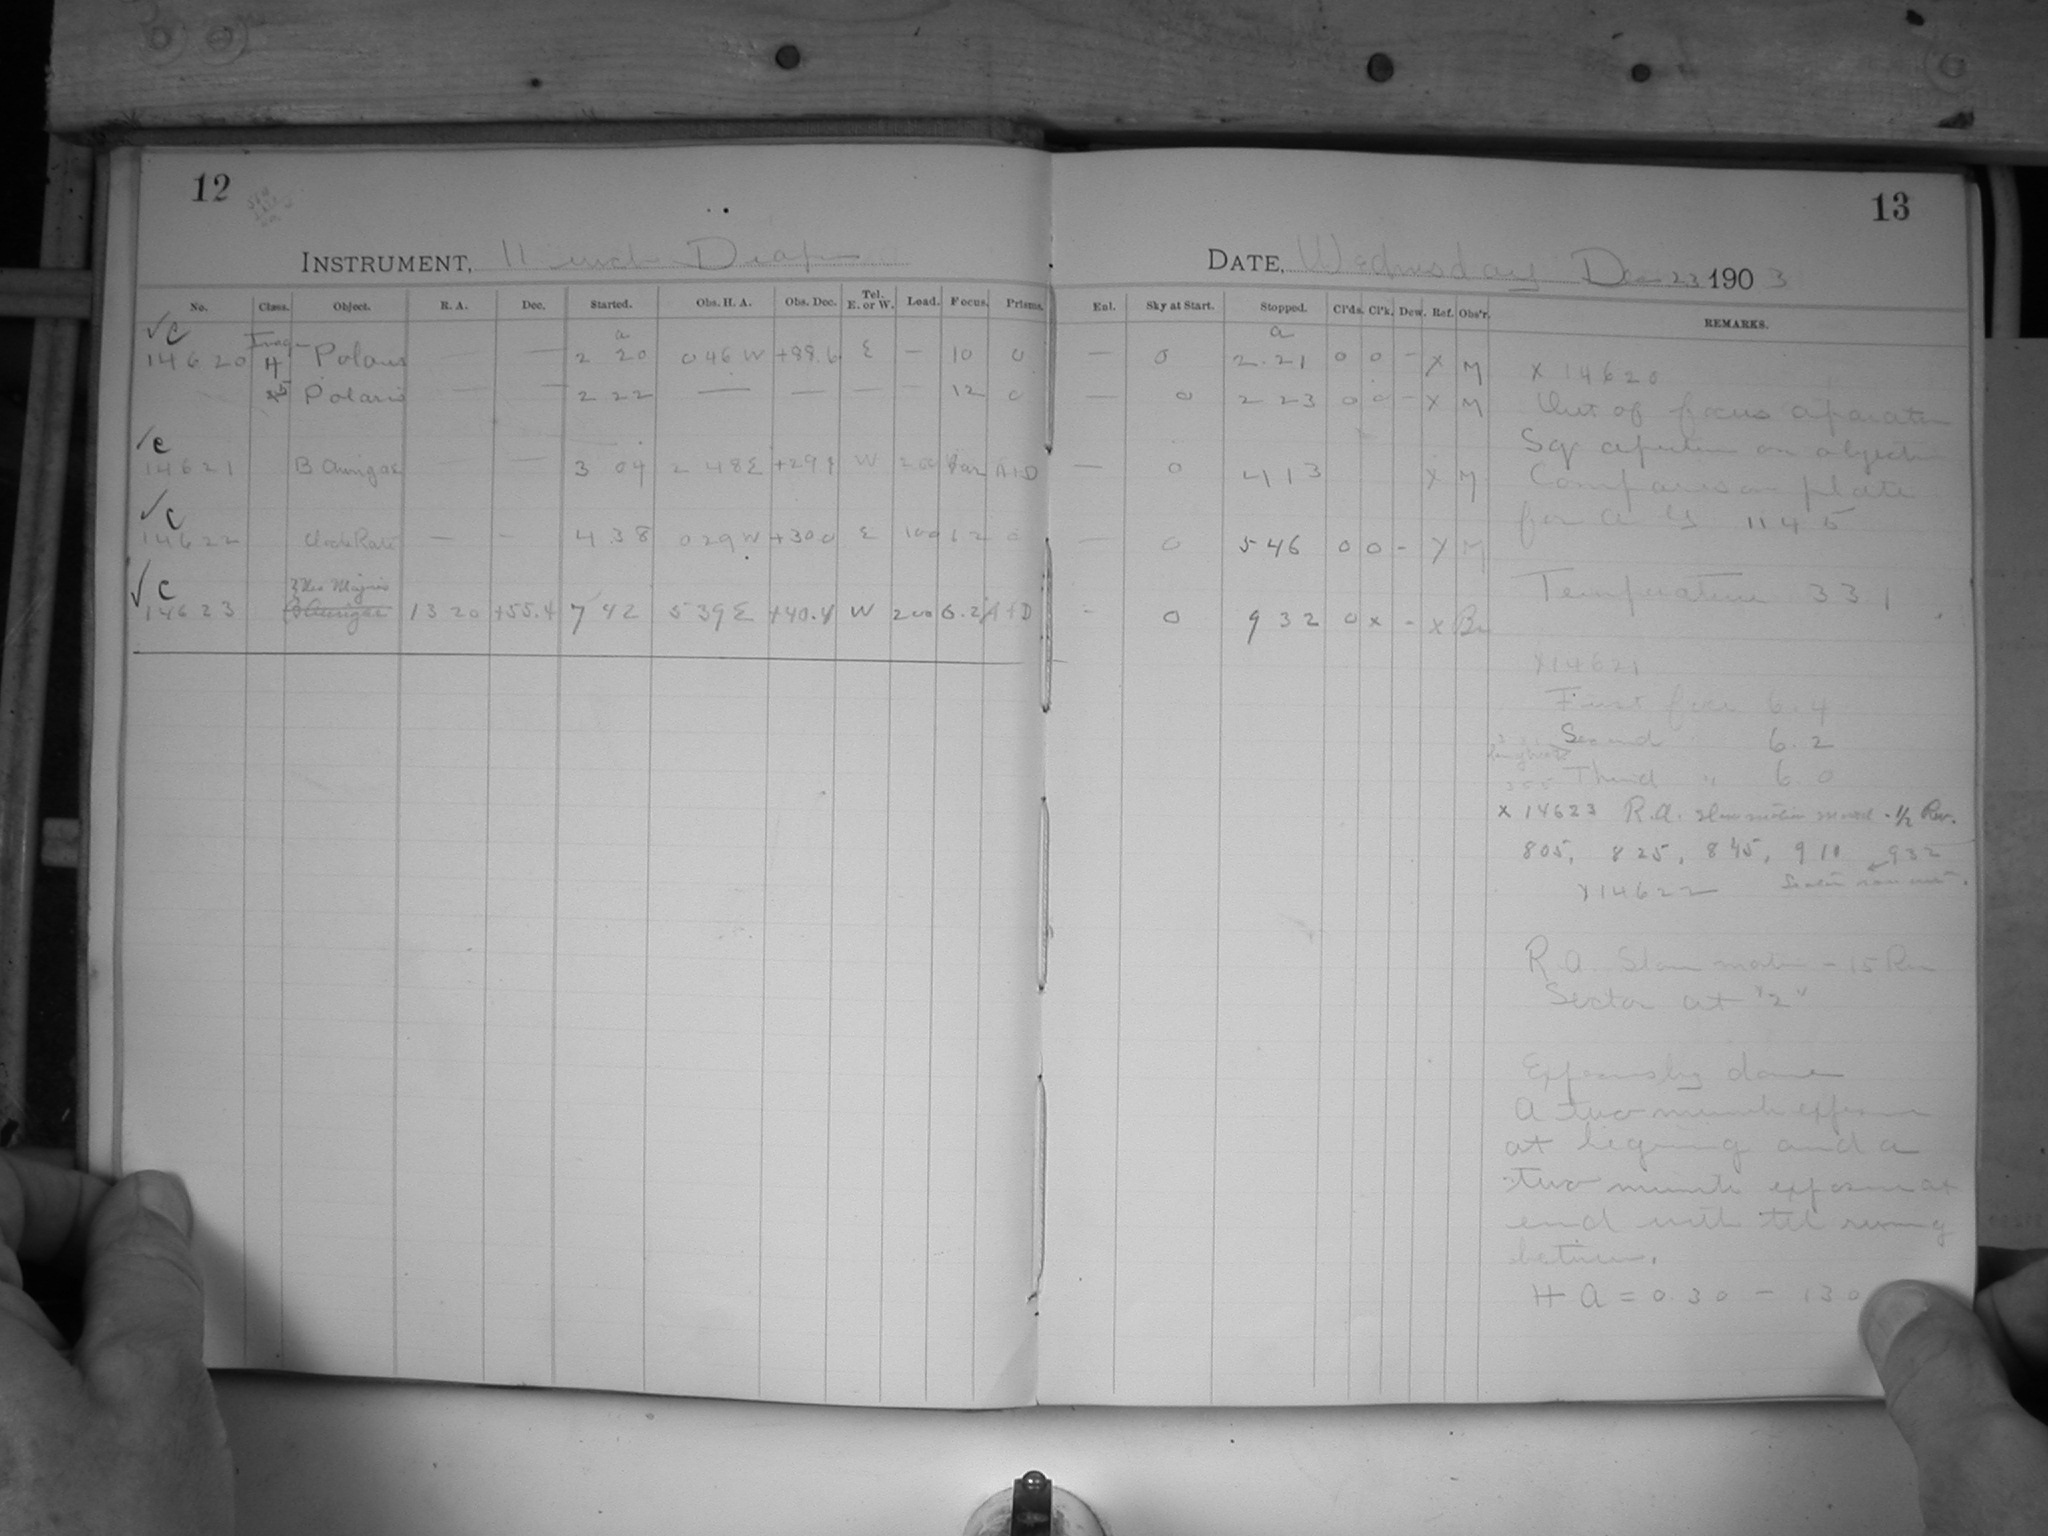 12
13
INSTRUMENT, 11 inch Draper
DATE, Wednesday Dec 23 1903
No. Class. Object. R. A. Dec. Started. Obs. H. A. Obs. Dec. Tel. E. or W. Load. Focus. Prisms. Enl. Sky at Start. Stopped. Cl'ds. Cl'k. Dew. Ref. Obs'r. REMARKS.
√C
a a
14620 H Polaris — — 2 20 0 46 W +88.6 E — 10 0 — 0 2.21 0 0 - X M
Polaris — — 2 22 — — — — 12 0 — 0 2 23 0 0 - X M
√C
14621 B Aurigae — — 3 04 2 48 E W 200 — 0 4 13 X M
√C
14622 Clock Rate — — 4 38 0 29 W +30.0 E 100 0 — 0 5 46 0 0 - X M
√C
Urs Majoris
14623 B Aurigae 13 20 +55.4 7 42 5 39 E +40.4 W 200 6.2 - 0 9 32 0 x - x
X 14620
Out of focus aparatus
Sq aperture on objective
Comparison plate
for 1145
Temperature 33.1
X14621
First face 6.4
Second " 6.2
Third " 6.0
X 14623 R.A. slow motion moved - 1/2 Rev.
805, 825, 845, 910 932
Sector ran out.
X14622
R.A. Slow motion - 15 Rev
Sector at "2"
A two minute exposure
at begining and a
two minute exposure at
end with tel runing
between.
H A = 0.30 - 130